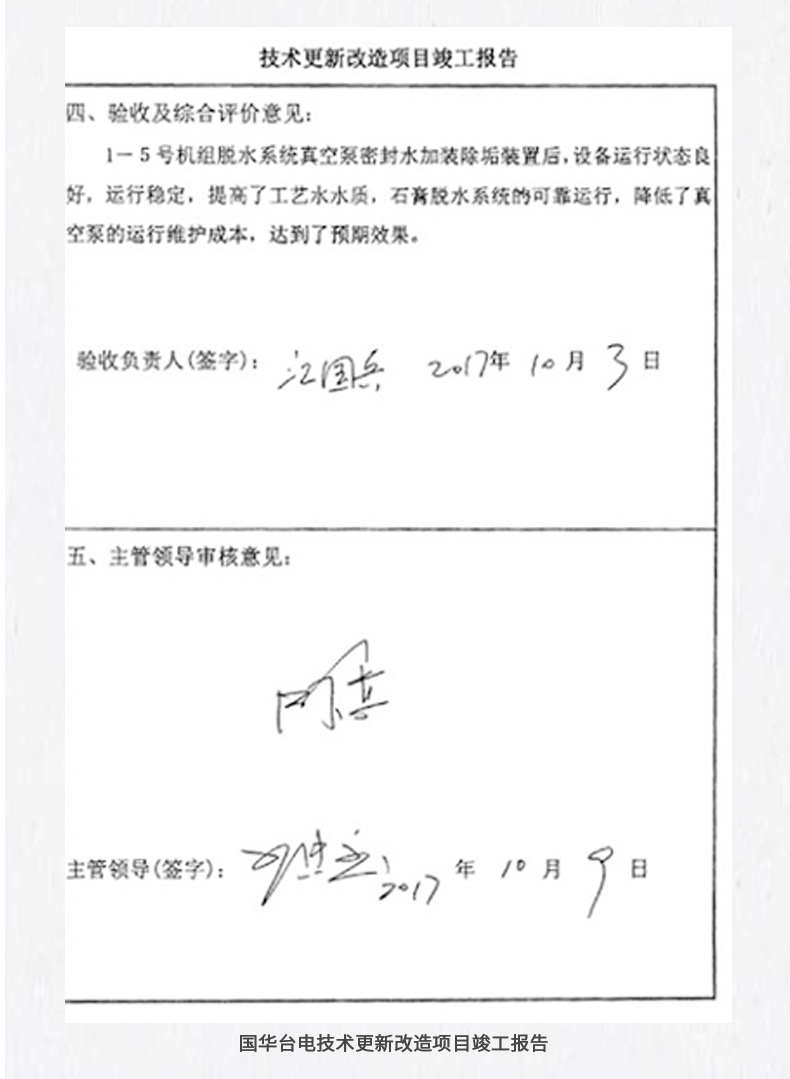 技术更新改造项目竣工报告
四、验收及综合评价意见:
1－5号机组脱水系统真空泵密封水加装除垢装置后,设备运行状态良
好，运行稳定，提高了工艺水水质，石膏脱水系统的可靠运行，降低了真
空泵的运行维护成本，达到了预期效果。
验收负责人(签字): 江国兵 2017年 10月 3日
五、主管领导审核意见:
主管领导(签字): 2017 年 10月 9日
国华台电技术更新改造项目竣工报告